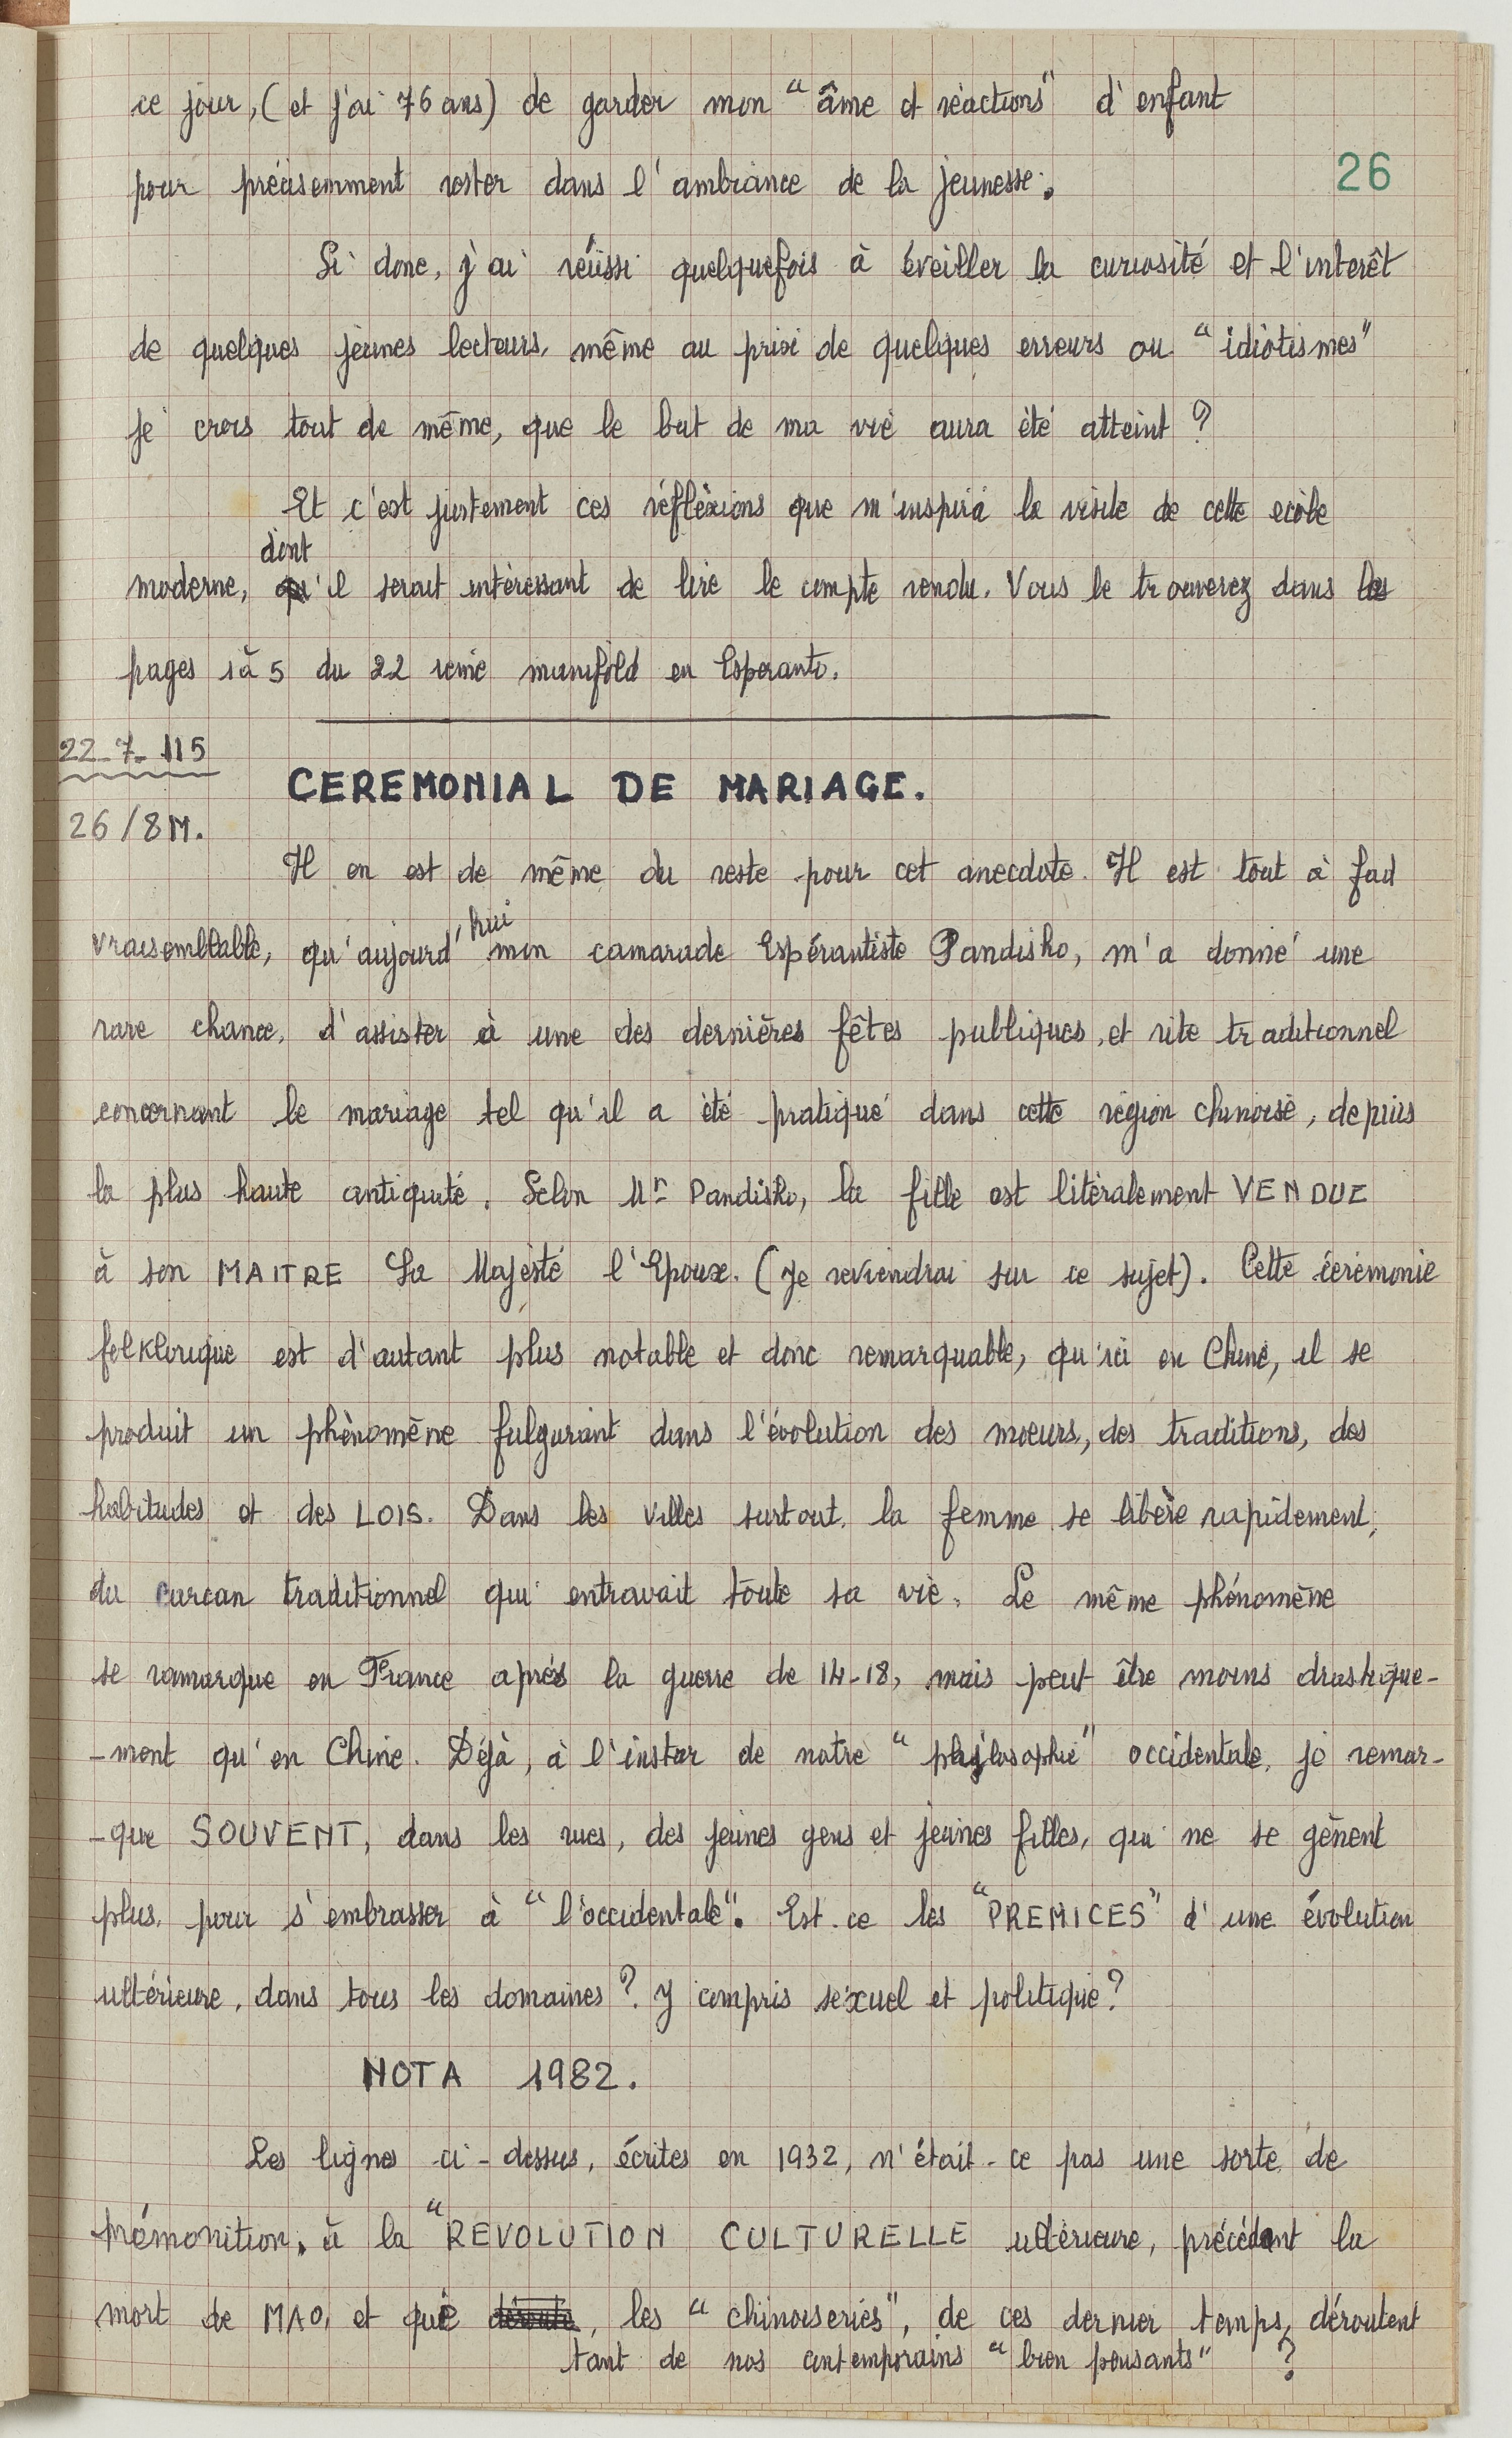 ce jour, (et j'ai 76 ans) de garder mon "âme et réactions" d'enfant
26
pour précisemment rester dans l'ambiance de la jeunesse.
Si donc, j'ai réüssi quelquefois à éveiller la curiosité et l'interêt
de quelques jeunes lecteurs, même au prix de quelques erreurs ou "idiotismes"
je crois tout de même, que le but de ma vie aura été atteint ?
Et c'est justement ces réflèxions que m'inspira la visite de cette ecòle
dont
moderne, qu'il serait intéressant de lire le compte rendu. Vous le trouverez dans les
pages 1 à 5 du 22 ieme manifold en Esperanto.
22-7-115
CEREMONIAL DE MARIAGE.
26/8 M.
Il en est de même du reste pour cet anecdote. Il est tout à fait
vraisemblable, qu'aujourd'hui mon camarade Espérantiste Pandisho, m'a donné une
rare chance, d'assister à une des dernières fêtes publiques, et rite traditionnel
concernant le mariage tel qu'il a été pratiqué dans cette région chinoise, depuis
la plus haute antiquité. Selon Mr Pandisho, la fille est litéralement VENDUE
à son MAITRE Sa Majèsté l'Epoux. (Je reviendrai sur ce sujet). Cette cérémonie
folklorique est d'autant plus notable et donc remarquable, qu'ici en Chine, il se
produit un phènomène fulgurant dans l'évolution des moeurs, des traditions, des
habitudes et des LOIS. Dans les villes surtout, la femme se libère rapidement,
du carcan traditionnel qui entravait toute sa vie. Le même phénomène
se ramarque en France après la guerre de 14-18, mais peut être moins drastique-
-ment qu'en Chine. Déjà, à l'instar de notre "philosophie" occidentale, je remar-
-que SOUVENT, dans les rues, des jeunes gens et jeunes filles, qui ne se gènent
plus, pour s'embrasser à "l'occidentale". Est-ce les "PREMICES" d'une évolution
ultérieure, dans tous les domaines ? y compris sexuel et politique ?
NOTA 1982.
Les lignes ci-dessus, écrites en 1932, n'était-ce pas une sorte de
prémonition, à la "REVOLUTION CULTURELLE ultérieure, précédant la
mort de MAO, et que déroute, les "chinoiseries", de ces dernier temps, déroutent
tant de nos contemporains "bien pensants" ?